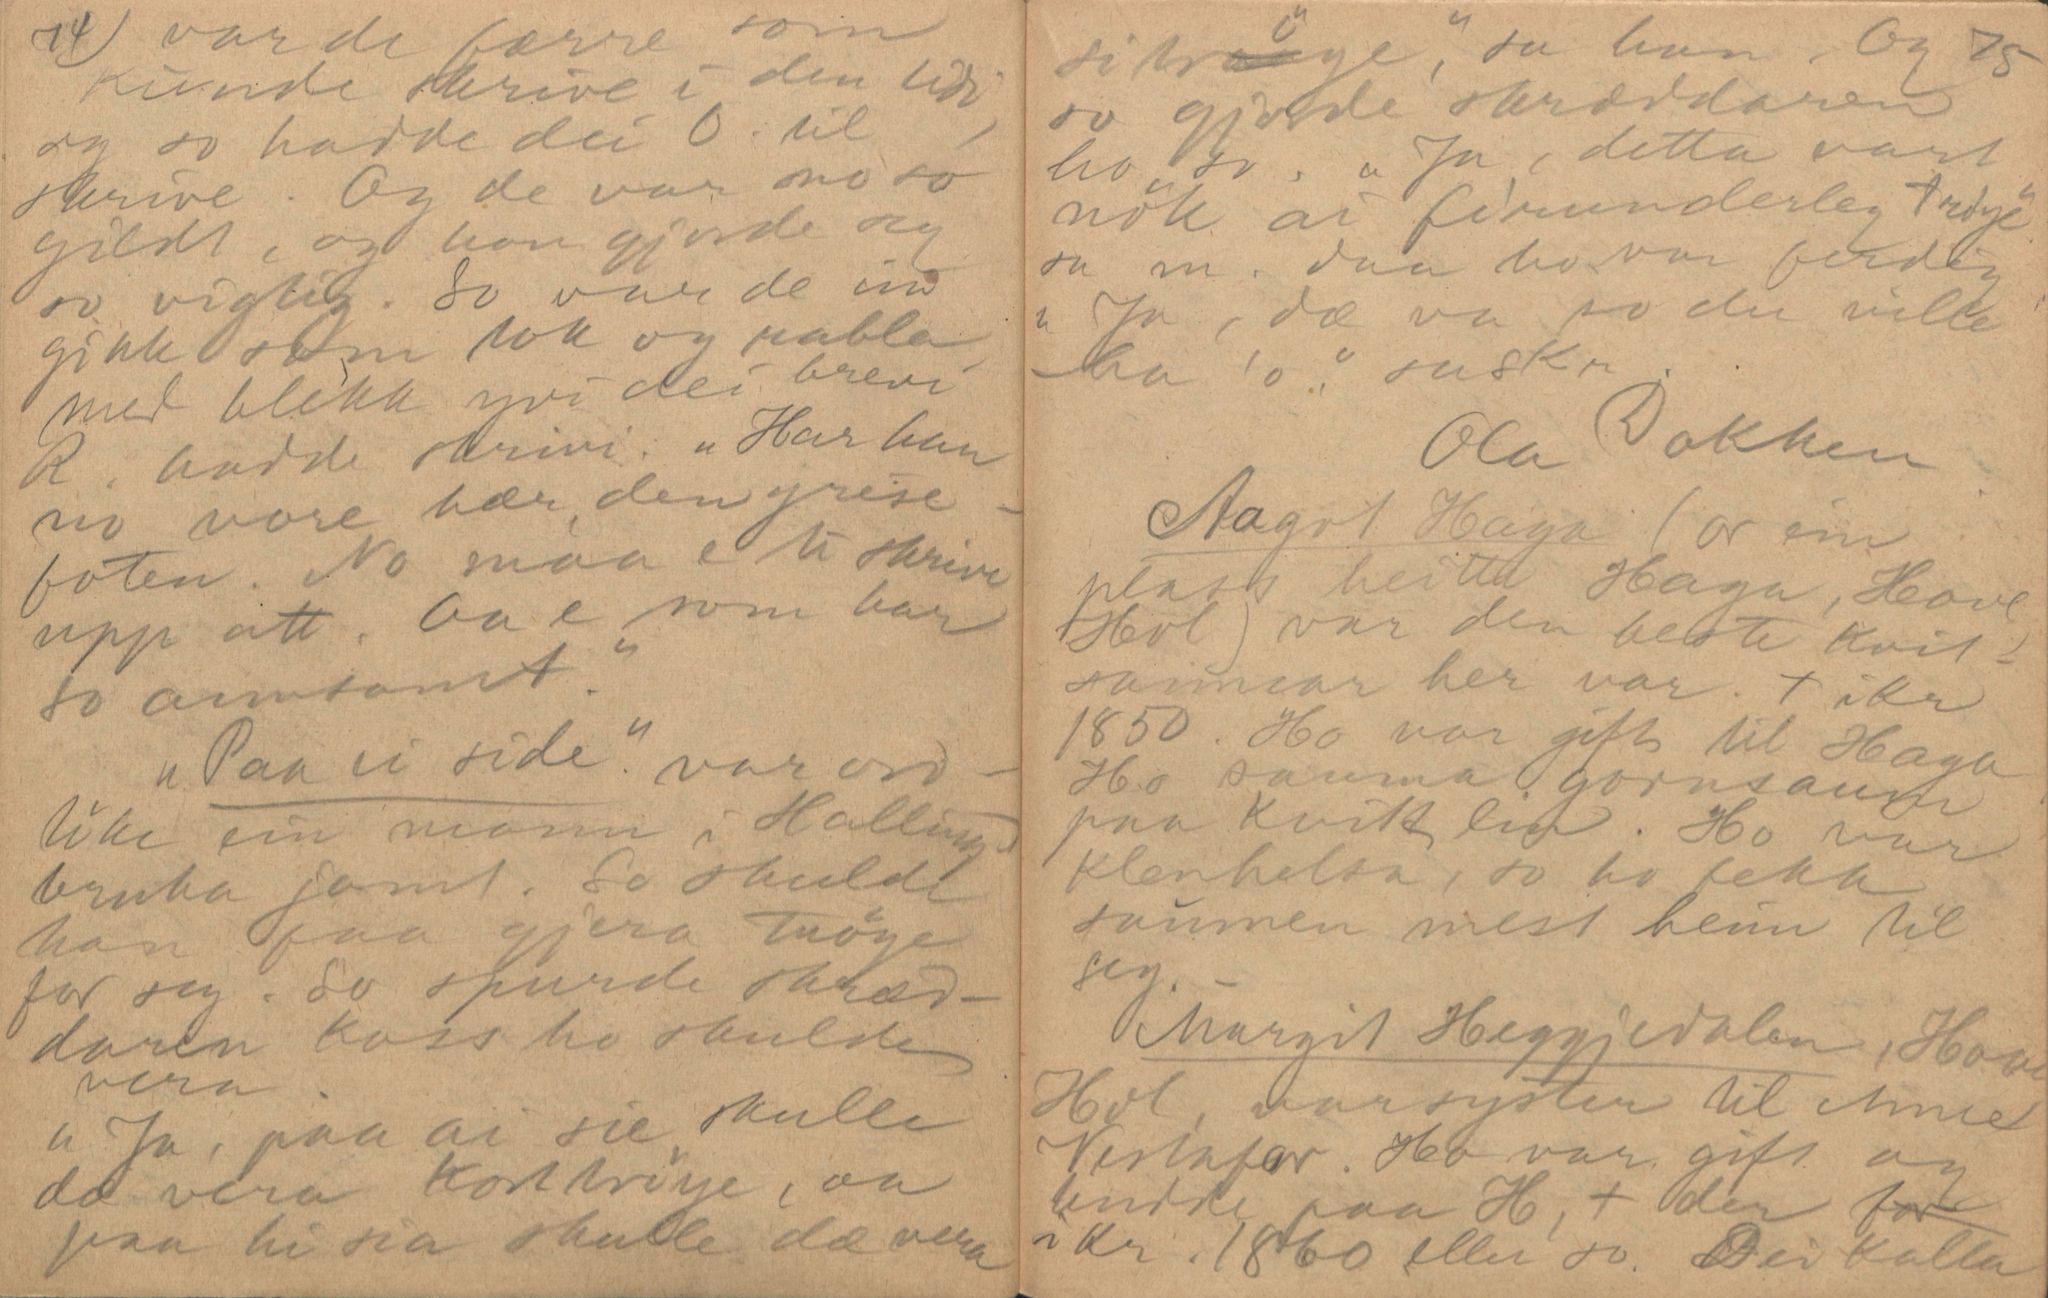 14) var de færre som
kunde skrive i den tidi,
og so hadde dei O. til
skrive. Og de var no so
gildt, og han gjorde seg
so vigtig. So var de ein
gikk som tok og rabla
med blekk yvi dei brevi
R. hadde skrivi. "Har han
no vore hær, den grise-
foten. No maa e te skrive
upp att. Aa e som har
so annsamt."
"Paa ei side." var ord-
tøke ein mann i Hallingd
bruka jamt. So skulde
han faa gjera trøye
for seg. So spurde skræd-
daren koss ho skulde
vera.
"Ja, paa ai sie skulle
dæ vera korttrøye, aa
paa hi sia skulle dæ vera
sitrøye," sa han. Og 75
so gjorde skræddaren
ho so. "Ja, detta vart
nok ai firunderleg trøye"
sa m. daa ho var ferdig
"Ja, dæ va so du ville
ha 'o." sa skr.
Ola Dokken
Aagot Haga (or ein
plass heitte Haga, Hovl
Hol) var den beste kvit-
saumar her var. + ikr
1850. Ho var gift til Haga
Ho sauma gornsaum
paa kvitt lin. Ho var
klenhelsa, so ho fekk
saumen mest heim til
seg. -
Margit Heggjedalen, Hovl
Hol, var syster til Anne
Nestafor. Ho var gift og
budde paa H, + der for
ikr. 1860 eller so. Dei kalla